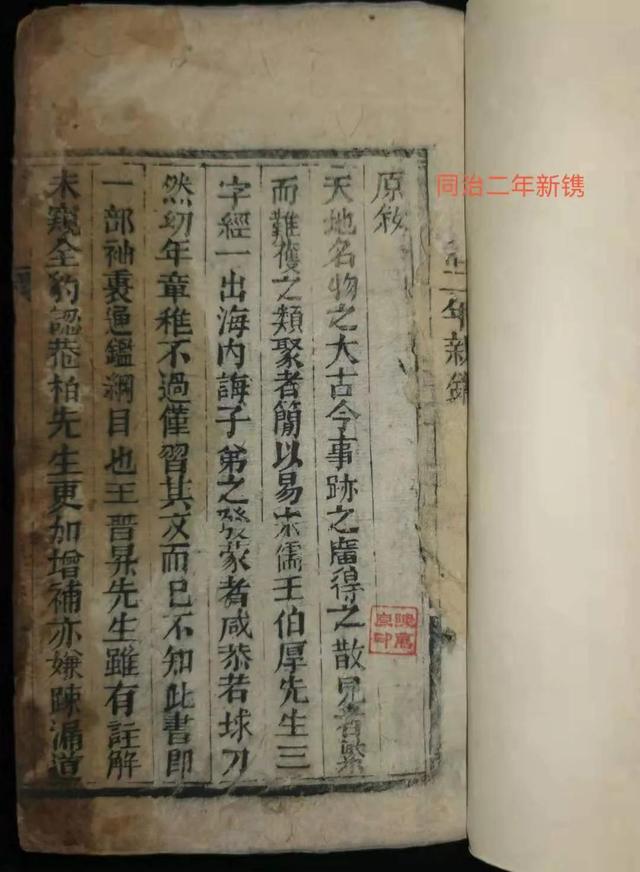 同治二年新镌
二年新鐫
原敘
天地名物之大古今事跡之廣得之散見者繁
而難獲之類聚者簡以易宋儒王伯厚先生三
字經一出海內誨子弟之發蒙者咸恭若球刀
然幼年童稚不過僅習其文而已不知此書即
一部袖裏通鑑綱目也王晋昇先生雖有註解
未窺全豹認菴柏先生更加增補亦嫌踈漏道